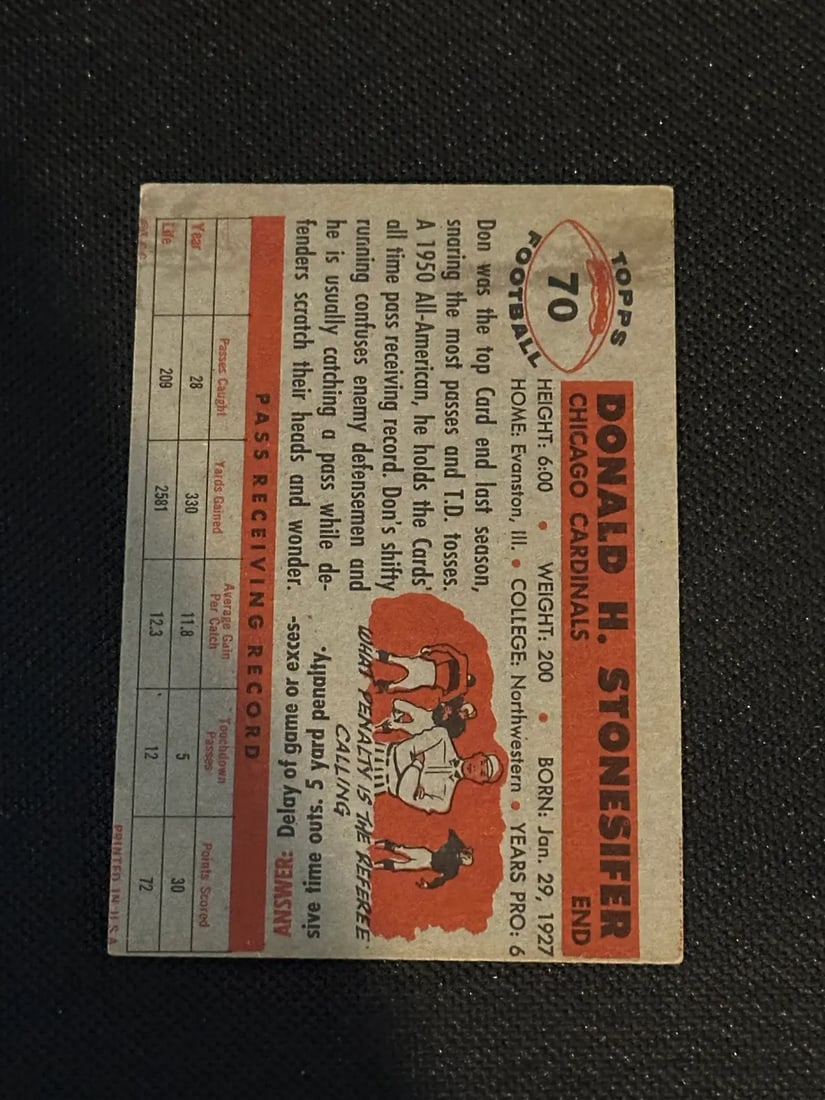 TOPPS
70
FOOTBALL
DONALD H. STONESIFER
CHICAGO CARDINALS END
HEIGHT: 6:00 • WEIGHT: 200 • BORN: Jan. 29, 1927
HOME: Evanston, Ill. • COLLEGE: Northwestern • YEARS PRO: 6
Don was the top Card end last season,
snaring the most passes and T.D. tosses.
A 1950 All-American, he holds the Cards'
all time pass receiving record. Don's shifty
running confuses enemy defensemen and
he is usually catching a pass while de-
fenders scratch their heads and wonder.
WHAT PENALTY IS THE REFEREE
CALLING
ANSWER: Delay of game or exces-
sive time outs. 5 yard penalty.
PASS RECEIVING RECORD
Passes Caught Yards Gained Average Gain Per Catch Touchdown Passes Points Scored
Year 28 330 11.8 5 30
Life 209 2581 12.3 12 72
PRINTED IN U.S.A.